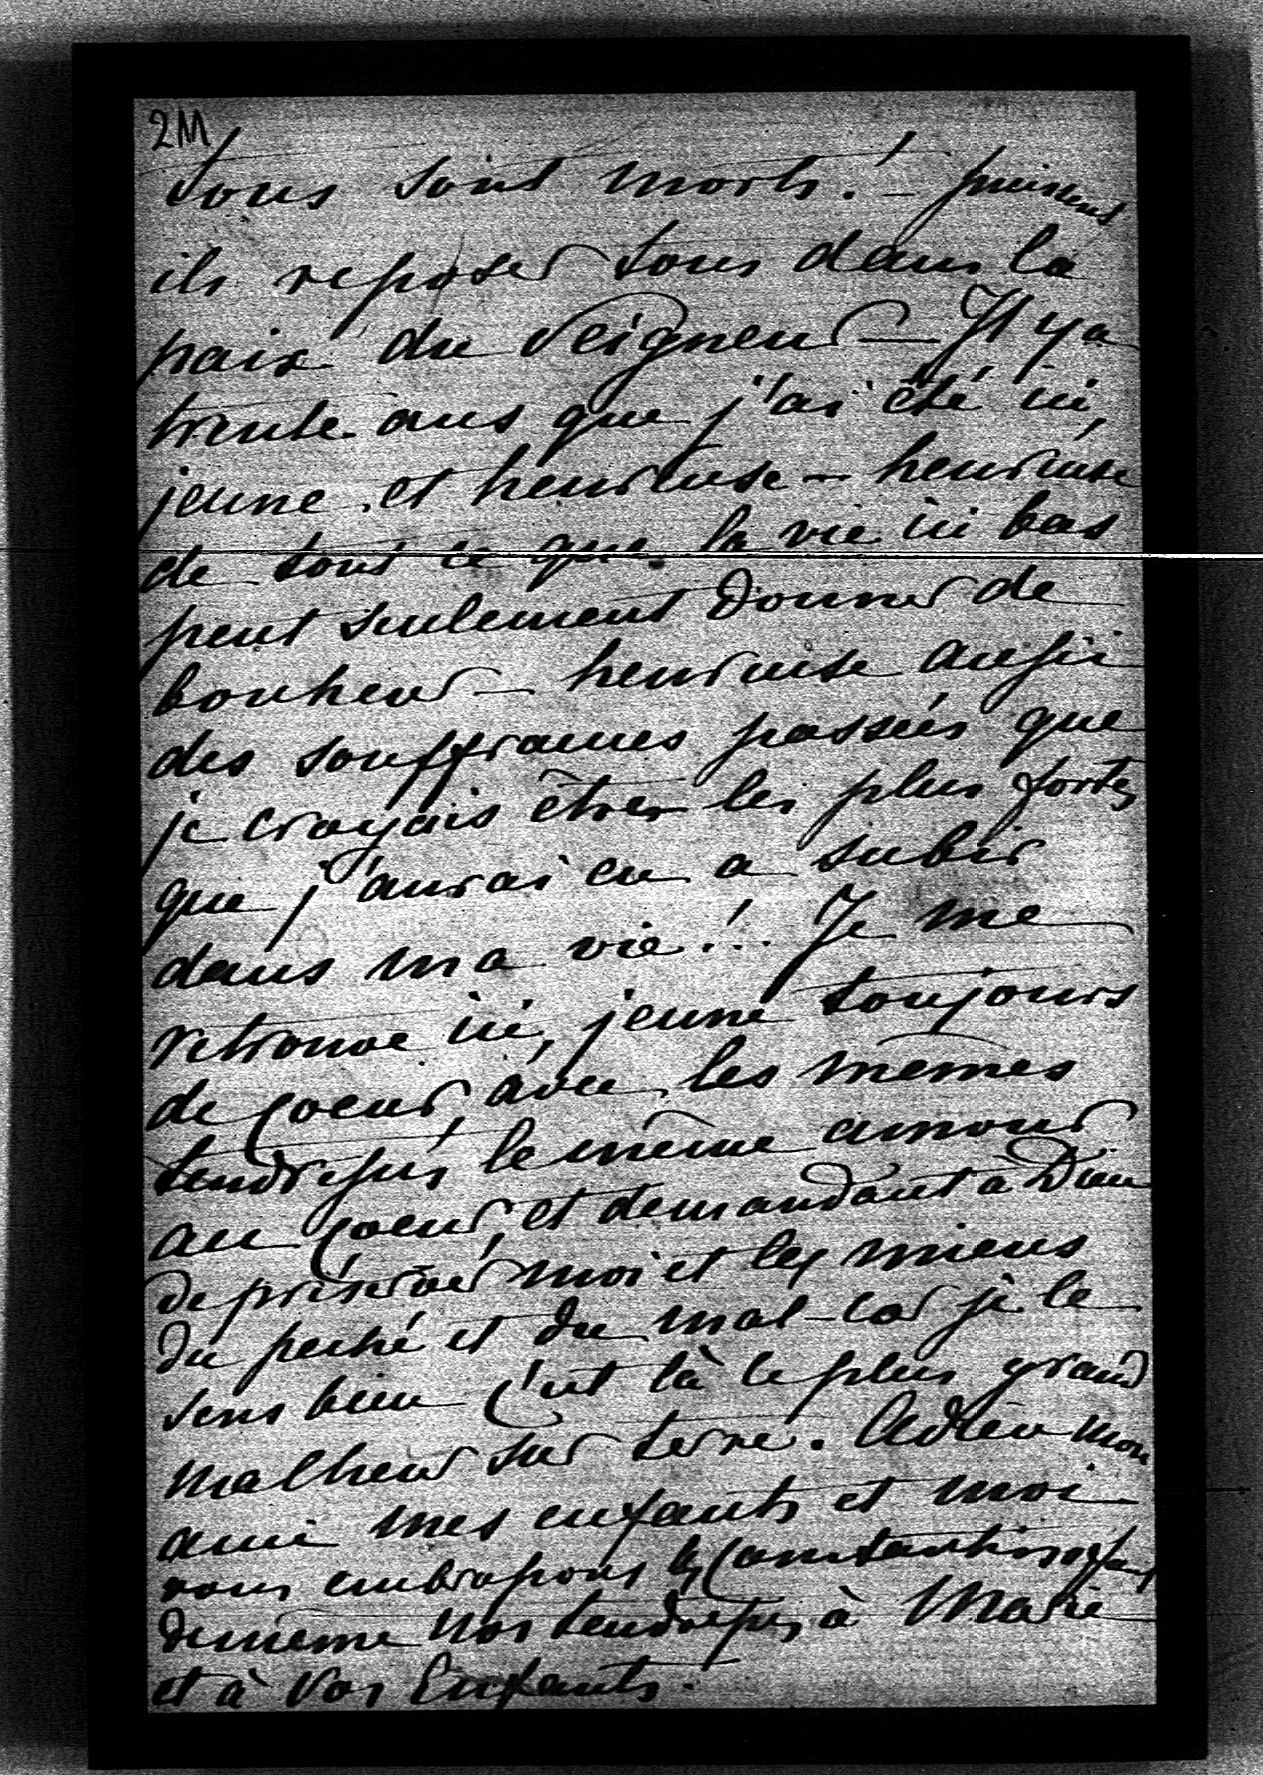 2M
Tous sont morts! – puissent
ils reposer tous dans la
paix du Seigneur – Il y a
trente ans que j'ai été ici,
jeune et heureuse – heureuse
de tout ce que la vie ici bas
peut seulement donner de
bonheur – heureuse aussi
des souffrances passées que
je croyais être les plus fortes
que j'aurai eu a subir
dans ma vie!.. Je me
retrouve ici, jeune toujours
de coeur, avec les mêmes
tendresses, le même amour
au coeur, et demandant à Dieu
de préserver moi et les miens
du peché et du mal – car je le
sens bien c'est là le plus grand
malheur sur terre. Adieu mon
ami mes enfants et moi
vous embrassons les Constantins font
de même nos tendresses à Marie
et à vos Enfants.